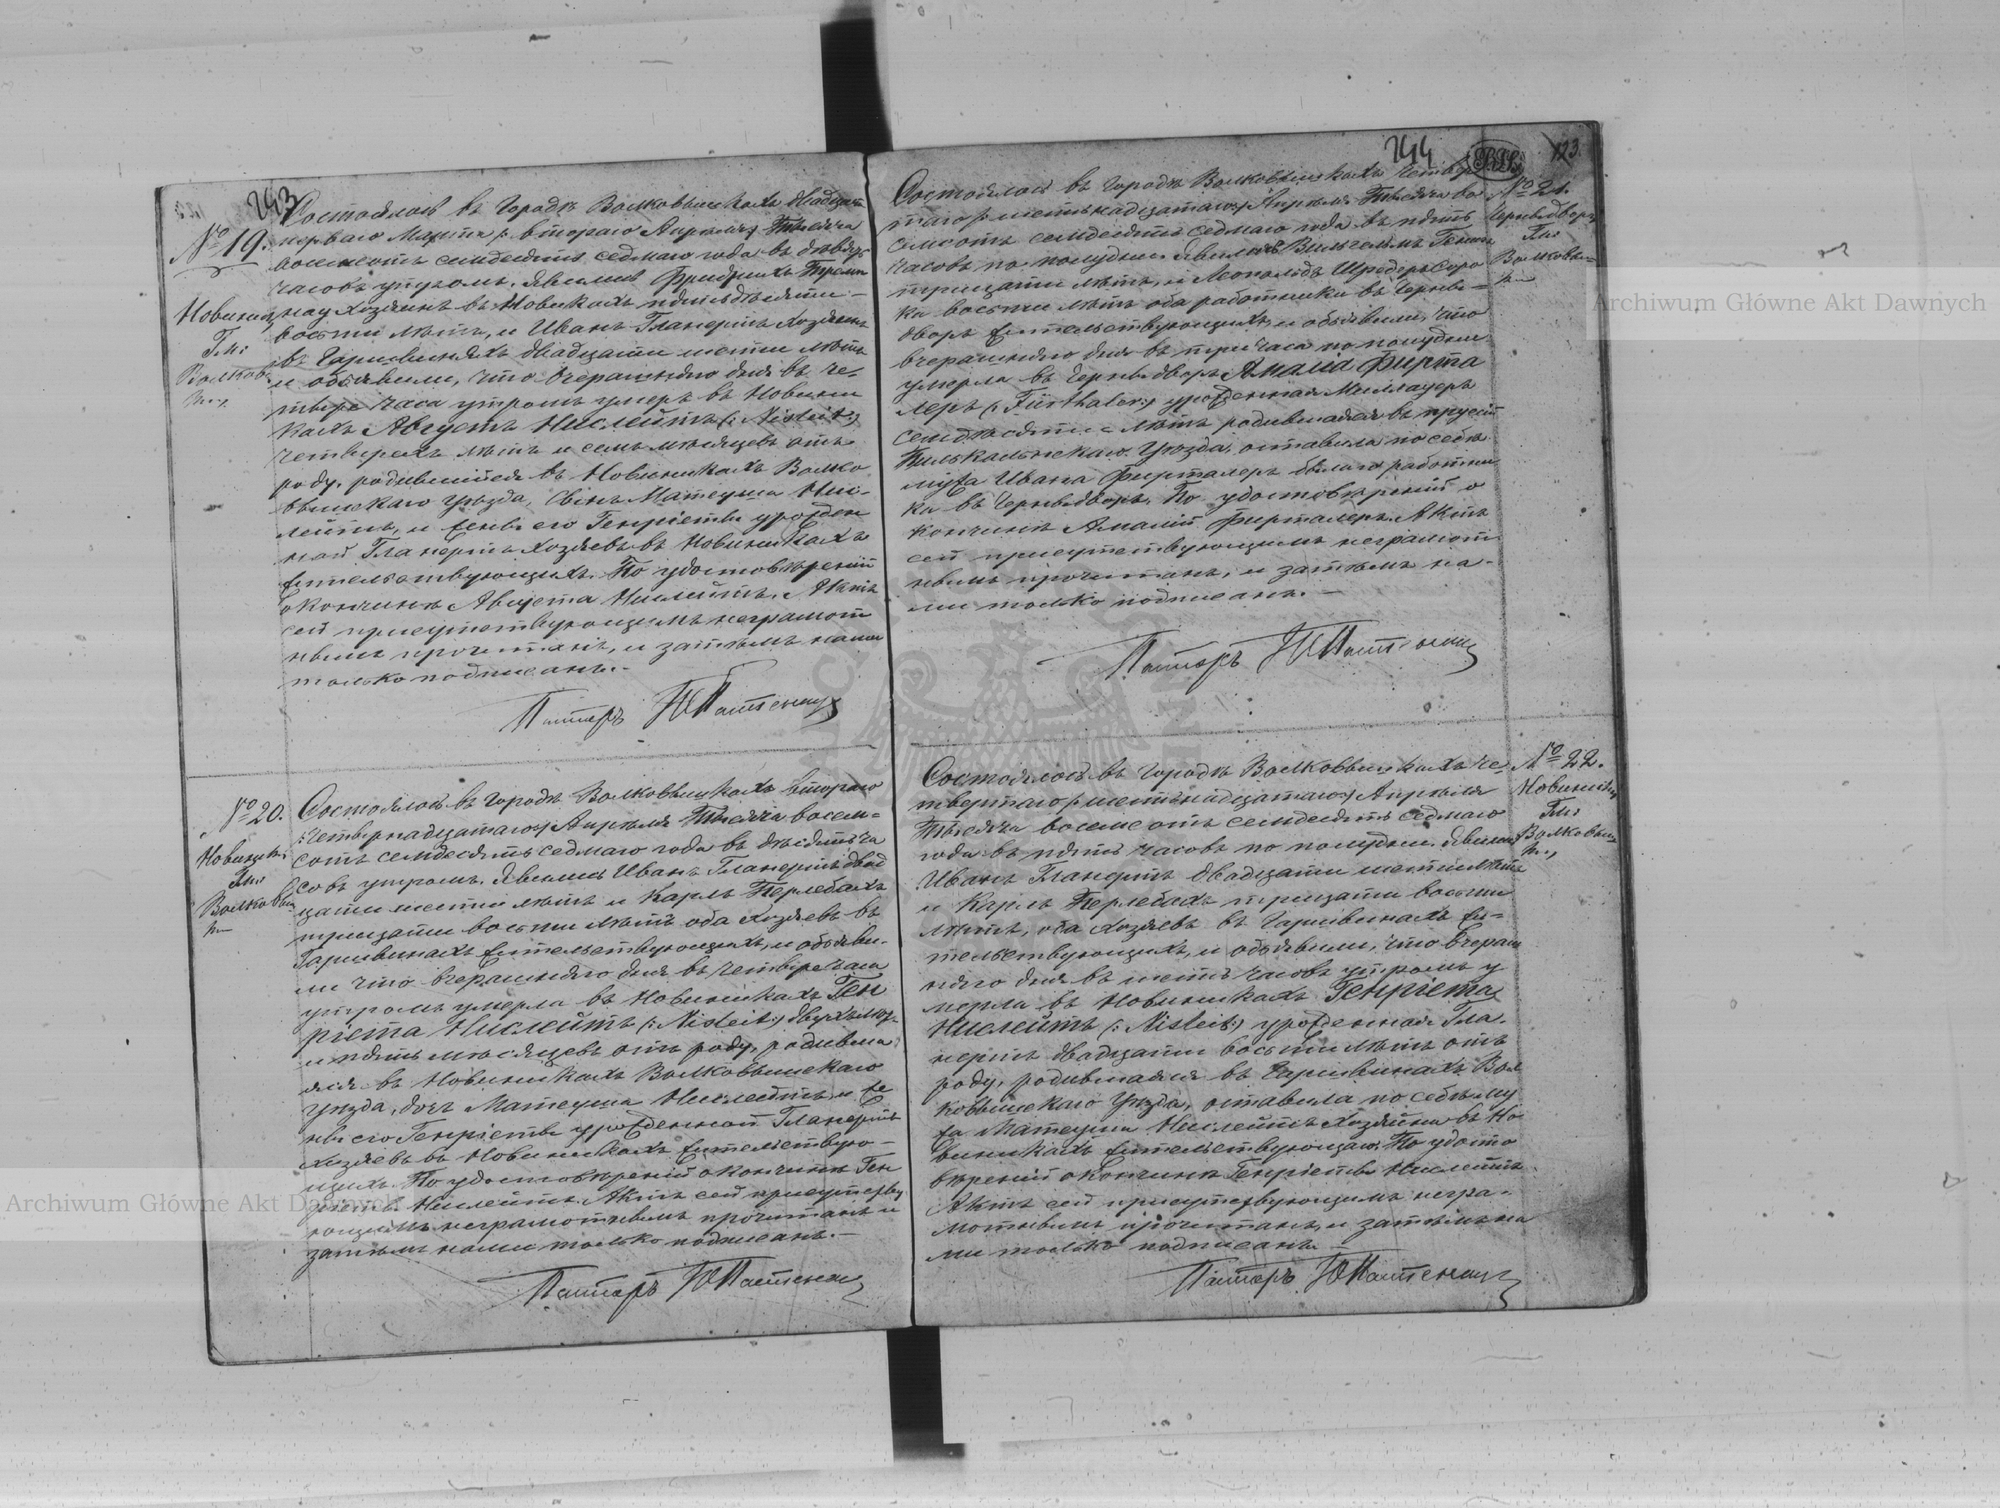 243
№ 19.
Новиники
Гм:
Волковы
Состоялось въ городѣ Волковышкахъ двадцать
перваго Марта /: втораго Апрѣля :/ тысяча
восемьсотъ семдесятъ седмаго года въ девять
часовъ утромъ. Явились Фридрихъ
хозяинъ въ Новикахъ пятьдесяти
восьми лѣтъ, и Иванъ Гланертъ хозяинъ
въ двадцати шести лѣтъ
и объявили, что вчерашняго дня въ че-
тыре часа утромъ умеръ въ Новини
кахъ Августъ Нислейтъ (: Nisleit :)
четырехъ лѣтъ и семь мѣсяцевъ отъ
роду, родившійся въ Новиникахъ Волко
вышскаго уѣзда, сынъ Матеуша Нис-
лейтъ, и жены его Генріеты урожден
ной Гланертъ хозяевъ въ Новиникахъ
жительствующихъ. По удостовѣреніи
о кончинѣ Августа Нислейтъ. Актъ
сей присутствующимъ неграмот
нымъ прочитанъ, и затѣмъ нами
только подписанъ.-
Пасторъ
№ 20.
Новиники
Гм:
Волковы
Состоялось въ городѣ Волковышкахъ втораго
/:четырнадцатаго:/ Апрѣля тысяча восем-
сотъ семдесятъ седмаго года въ десять ча
совъ утромъ. Явились Иванъ Гланертъ двад
цати шести лѣтъ и Карлъ Перлебахъ
тридцати восьми лѣтъ оба хозяевъ въ
жительствующихъ, и объяви-
ли что вчерашняго дня въ четыре часа
утромъ умерла въ Новиникахъ Ген
ріета Нислейтъ (: Nisleit :) двухъ лѣтъ
и пять мѣсяцевъ отъ роду, родивша
яся въ Новиникахъ Волковышскаго
уѣзда, дочь Матеуша Нислейтъ и же
ны его Генріеты урожденной Гланертъ
хозяевъ въ Новиникахъ жительствую-
щихъ. По удостовѣреніи о кончинѣ Ген
ріеты Нислейтъ. Актъ сей присутству
ющимъ неграмотнымъ прочитанъ и
затѣмъ нами только подписанъ.-
Пасторъ
244
123
№ 21.
Гм:
Волковы-
Состоялось въ городѣ Волковышкахъ четвер
таго /: шестьнадцатаго :/ Апрѣля тысяча во
семсотъ семдесятъ седмаго года въ пять
часовъ по полудни. Явились Вильгельмъ
тридцати лѣтъ, и Леопольдъ Шредеръ соро
ка восьми лѣтъ оба работники въ
дворѣ жительствующихъ, и объявили, что
вчерашняго дня въ три часа по полудни
умерла въ Амалія Фирта
леръ (: Fürthaler :) урожденная
семдесяти лѣтъ родившаяся въ Прусіи
Пилькальнскаго уѣзда, оставила по себѣ
мужа Ивана Фирталеръ бывшаго работни
ка въ По удостовѣреніи о
кончинѣ Амаліи Фирталеръ. Актъ
сей присутствующимъ неграмот
нымъ прочитанъ, и затѣмъ на-
ми только подписанъ.-
Пасторъ
№ 22.
Новиники
Гм:
Волковы
Состоялось въ городѣ Волковышкахъ че-
твертаго /: шестьнадцатаго :/ Апрѣля
тысяча восемсотъ семдесятъ седмаго
года въ пять часовъ по полудни. Явились
Иванъ Гланертъ двадцати шести лѣтъ
и Карлъ Перлебахъ тридцати восьми
лѣтъ, оба хозяевъ въ жи-
тельствующихъ, и объявили, что вчераш
няго дня въ шесть часовъ утромъ у
мерла въ Новиникахъ Генріета
Нислейтъ (: Nisleit :) урожденная Гла-
нертъ двадцати восьми лѣтъ отъ
роду, родившаяся въ Вол
ковышскаго уѣзда, оставила по себѣ му
жа Матеуша Нислейтъ хозяина въ Но
виникахъ жительствующаго. По удосто
вѣреніи о кончинѣ Генріеты Нислейтъ.
Актъ сей присутствующимъ негра-
мотнымъ прочитанъ, и затѣмъ на
ми только подписанъ.-
Пасторъ
Archiwum Główne Akt Dawnych
Archiwum Główne Akt Dawnych